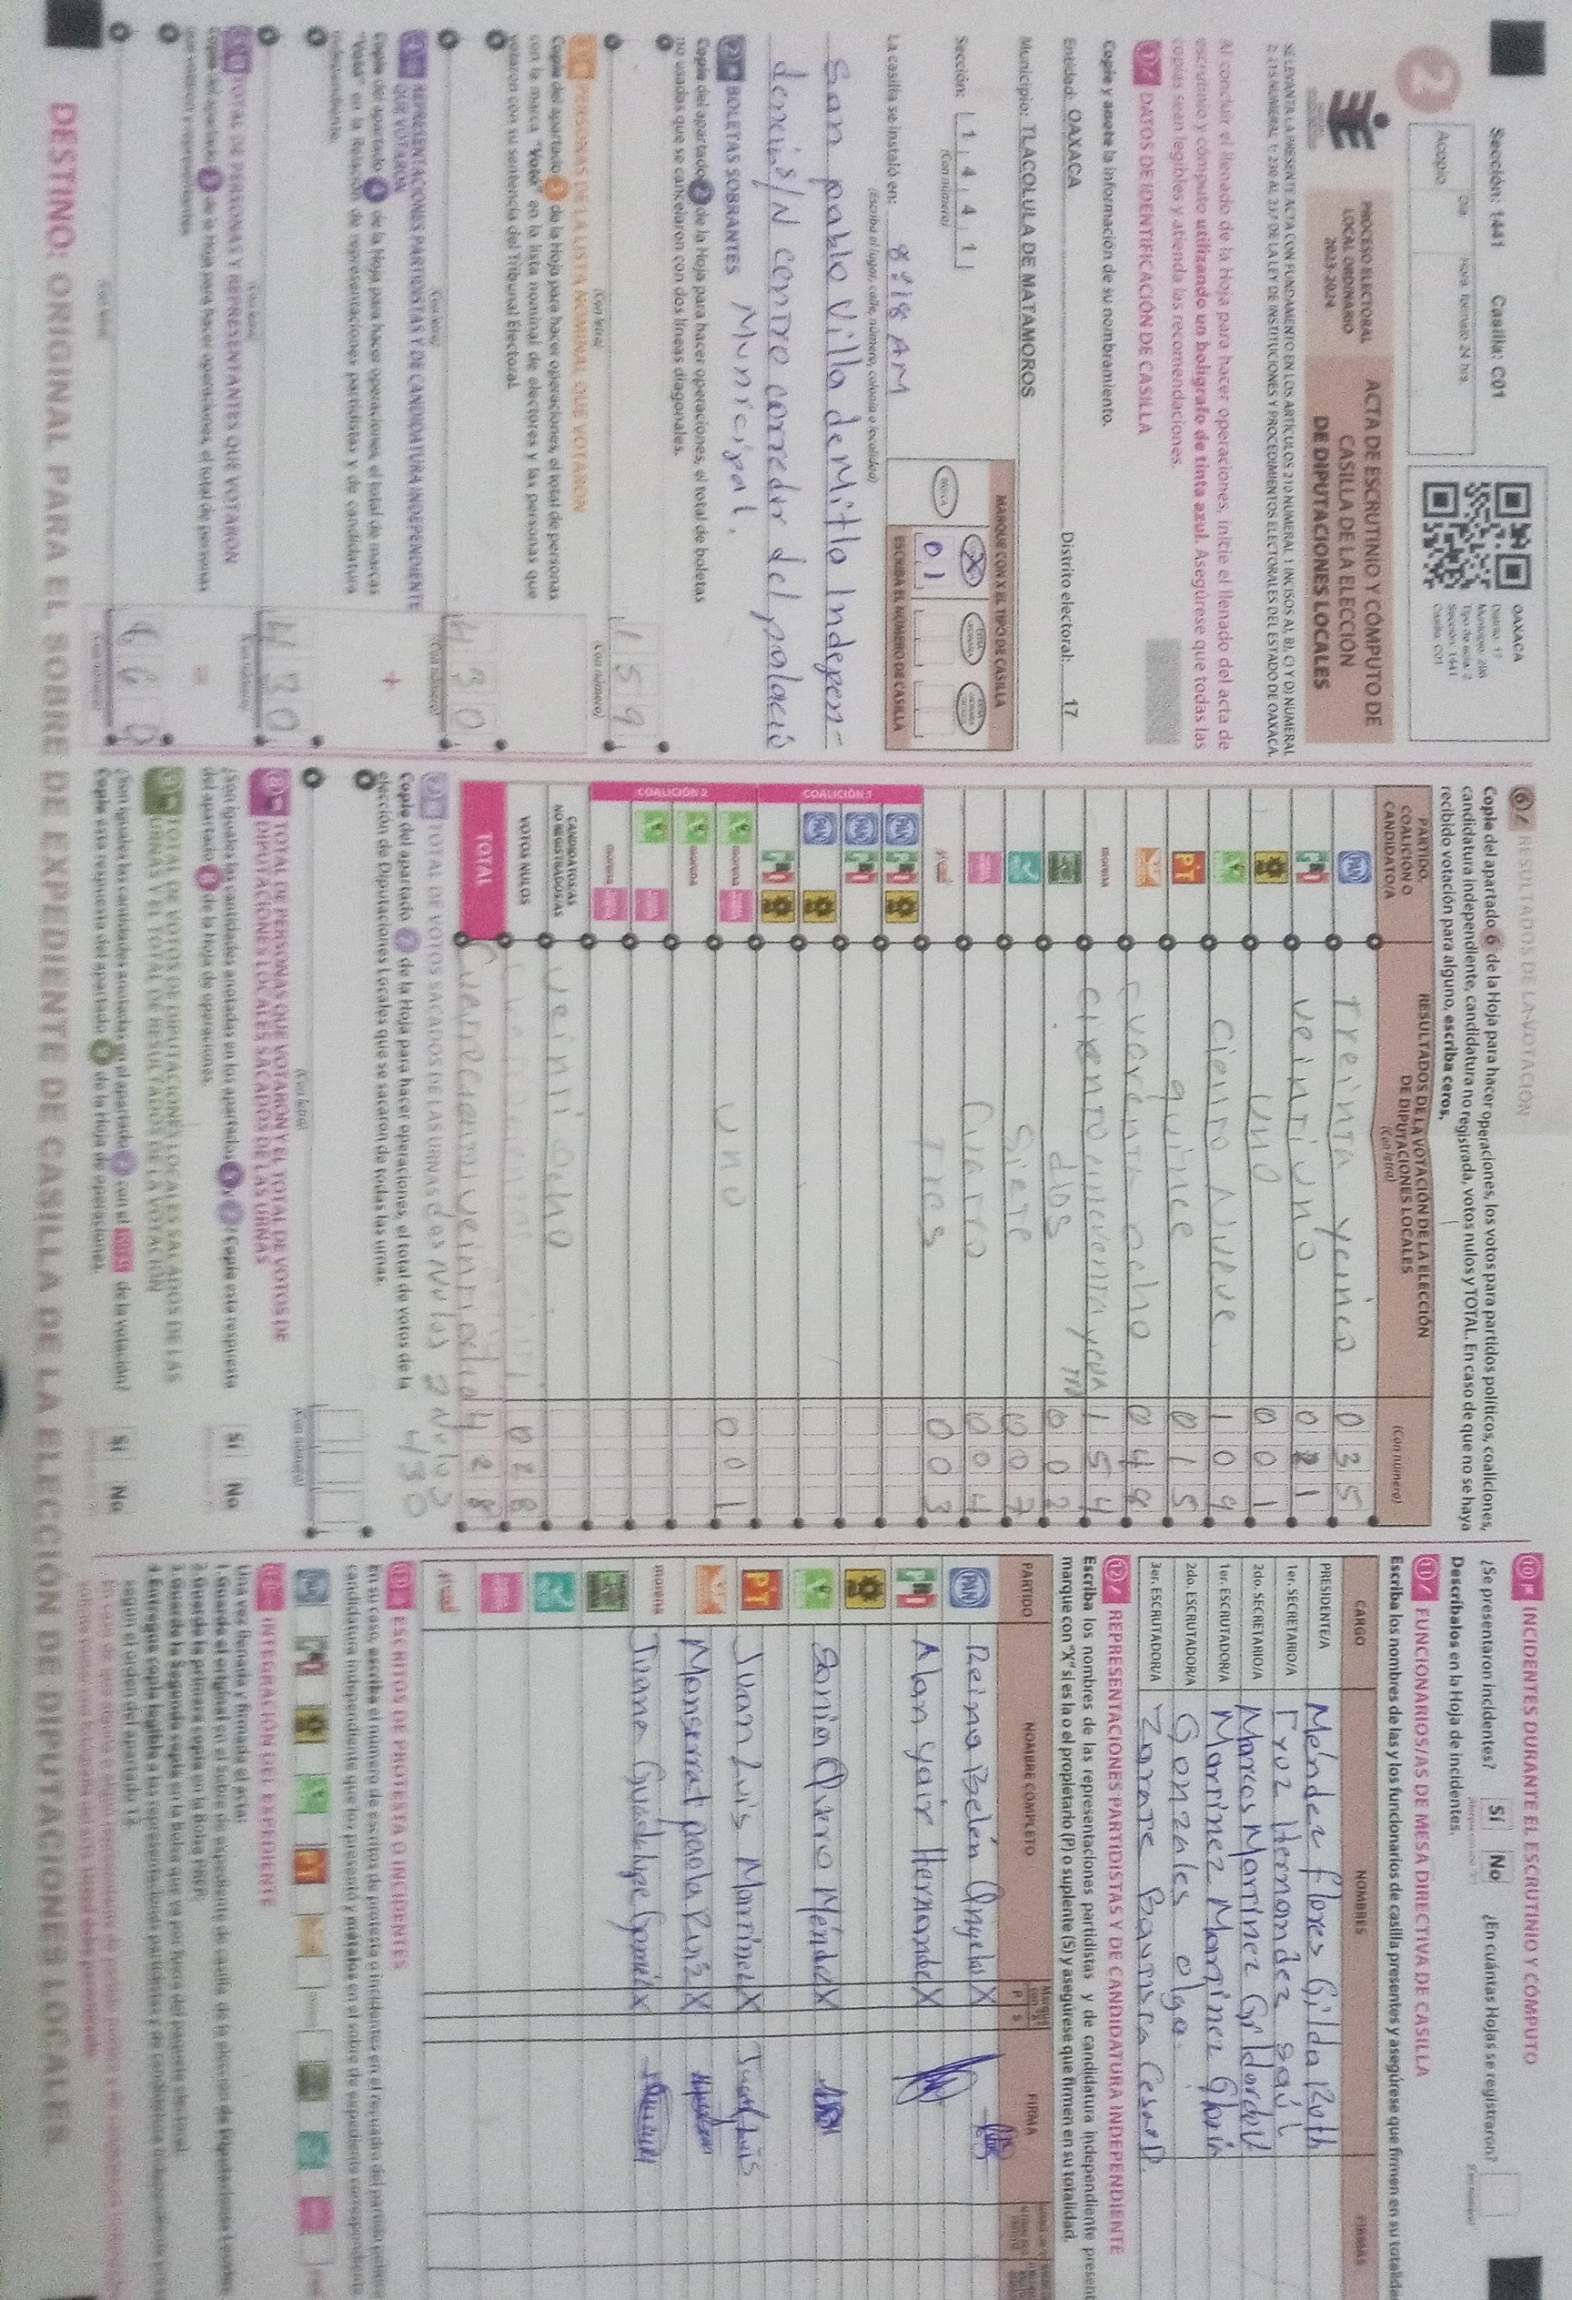 Sección: 1441 Casilla: C01
2
Día Hora, formato 24 hrs.
Acopio
OAXACA
Distrito: 17
Sección: 1441
Casilla: C01
PROCESO ELECTORAL
LOCAL ORDINARIO
2023-2024
ACTA DE ESCRUTINIO Y CÓMPUTO DE
CASILLA DE LA ELECCIÓN
DE DIPUTACIONES LOCALES
SE LEVANTA LA PRESENTE ACTA CON FUNDAMENTO EN LOS ARTÍCULOS 210 NUMERAL 1 INCISOS A), B), C) Y D) NUMERAL
2; 215 NUMERAL 1; 230 AL 237 DE LA LEY DE INSTITUCIONES Y PROCEDIMIENTOS ELECTORALES DEL ESTADO DE OAXACA.
Al concluir el llenado de la Hoja para hacer operaciones, inicie el llenado del acta de
escrutinio y cómputo utilizando un bolígrafo de tinta azul. Asegúrese que todas las
copias sean legibles y atienda las recomendaciones.
1 DATOS DE IDENTIFICACIÓN DE CASILLA
Copie y anote la información de su nombramiento.
Entidad: OAXACA Distrito electoral: 17
Municipio: TLACOLULA DE MATAMOROS
Sección: 1 4 4 1
(Con número)
MARQUE CON X EL TIPO DE CASILLA
X
ESCRIBA EL NÚMERO DE CASILLA
0 1
La casilla se instaló en: 8:18 AM
(Escriba el lugar, calle, número, colonia o localidad)
San pablo Villa de Mitla Indepen-
dencia S/N centro corredor del palacio
Municipal.
2 BOLETAS SOBRANTES
Copie del apartado 2 de la Hoja para hacer operaciones, el total de boletas
no usadas que se cancelaron con dos líneas diagonales.
159
(Con letra) (Con número)
3 PERSONAS DE LA LISTA NOMINAL QUE VOTARON
Copie del apartado 3 de la Hoja para hacer operaciones, el total de personas
con la marca "Votó" en la lista nominal de electores y las personas que
votaron con su sentencia del Tribunal Electoral.
430
(Con letra) (Con número)
+
4 REPRESENTACIONES PARTIDISTAS Y DE CANDIDATURA INDEPENDIENTE
QUE VOTARON
Copie del apartado 4 de la Hoja para hacer operaciones, el total de marcas
"Votó" en la Relación de representaciones partidistas y de candidatura
independiente.
430
(Con letra) (Con número)
=
5 TOTAL DE PERSONAS Y REPRESENTANTES QUE VOTARON
Copie del apartado 5 de la Hoja para hacer operaciones, el total de personas
que votaron y representantes.
860
(Con letra) (Con número)
6 RESULTADOS DE LA VOTACIÓN
Copie del apartado 6 de la Hoja para hacer operaciones, los votos para partidos políticos, coaliciones,
candidatura independiente, candidatura no registrada, votos nulos y TOTAL. En caso de que no se haya
recibido votación para alguno, escriba ceros.
PARTIDO,
COALICIÓN O
CANDIDATO/A
RESULTADOS DE LA VOTACIÓN DE LA ELECCIÓN
DE DIPUTACIONES LOCALES
(Con letra) (Con número)
PAN Treinta y cinco 035
PRI veintiuno 021
uno 001
ciento nueve 109
PT quince 015
cuarenta ocho 048
morena ciento cincuenta y cua 154
tro
dos 002
siete 007
cuatro 004
Tres 003
COALICIÓN 1
PAN PRI
PAN PRI
PAN
PRI
COALICIÓN 2
morena uno 001
morena
morena
CANDIDATOS/AS
NO REGISTRADOS/AS
veinti ocho
VOTOS NULOS 028
TOTAL 428
7 TOTAL DE VOTOS SACADOS DE LAS URNAS dos Nulos 2 Nulos
430
Copie del apartado 7 de la Hoja para hacer operaciones, el total de votos de la
elección de Diputaciones Locales que se sacaron de todas las urnas.
(Con letra) (Con número)
8 TOTAL DE PERSONAS QUE VOTARON Y EL TOTAL DE VOTOS DE
DIPUTACIONES LOCALES SACADOS DE LAS URNAS
¿Son iguales las cantidades anotadas en los apartados 5 y 7? Copie esta respuesta
del apartado 8 de la Hoja de operaciones. Sí No
9 TOTAL DE VOTOS DE DIPUTACIONES LOCALES SACADOS DE LAS
URNAS Y EL TOTAL DE RESULTADOS DE LA VOTACIÓN
¿Son iguales las cantidades anotadas en el apartado 7 con el TOTAL de la votación?
Copie esta respuesta del apartado 9 de la Hoja de operaciones. Sí No
10 INCIDENTES DURANTE EL ESCRUTINIO Y CÓMPUTO
¿Se presentaron incidentes? Sí No ¿En cuántas Hojas se registraron?
Descríbalos en la Hoja de incidentes.
11 FUNCIONARIOS/AS DE MESA DIRECTIVA DE CASILLA
Escriba los nombres de las y los funcionarios de casilla presentes y asegúrese que firmen en su totalidad
CARGO NOMBRES FIRMAS
PRESIDENTE/A Méndez flores Gilda Ruth
1er. SECRETARIO/A Cruz Hernandez Saúl
2do. SECRETARIO/A Marcos Martinez Grildardo U
1er. ESCRUTADOR/A Martinez Martinez Gloria
2do. ESCRUTADOR/A Gonzales olga.
3er. ESCRUTADOR/A Zarate Bautista Cesar D.
12 REPRESENTACIONES PARTIDISTAS Y DE CANDIDATURA INDEPENDIENTE
Escriba los nombres de las representaciones partidistas y de candidatura independiente present
marque con "X" si es la o el propietario (P) o suplente (S) y asegúrese que firmen en su totalidad.
PARTIDO NOMBRE COMPLETO P S FIRMA
PAN Reina Belén Angeles X
PRI Alan yair Hernandez X
Sonia Quero Méndez X
PT Juan Luis Martinez X Juan Luis
Monserrat paola Ruiz X
morena Juana Guadalupe Gomez X
13 ESCRITOS DE PROTESTA O INCIDENTES
En su caso, escriba el número de escritos de protesta o incidentes en el recuadro del partido político
candidatura independiente que los presentó y métalos en el sobre de expediente correspondiente
14 INTEGRACIÓN DEL EXPEDIENTE
Una vez llenada y firmada el acta:
1. Guarde el original en el Sobre de expediente de casilla de la elección de Diputaciones Locales.
2. Guarde la primera copia en la Bolsa PREP.
3. Guarde la Segunda copia en la bolsa que va por fuera del paquete electoral.
DESTINO: ORIGINAL PARA EL SOBRE DE EXPEDIENTE DE CASILLA DE LA ELECCIÓN DE DIPUTACIONES LOCALES